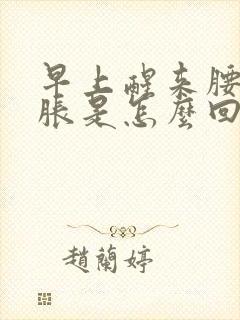 早上醒来腰
脹是怎麼回
趙蘭婷